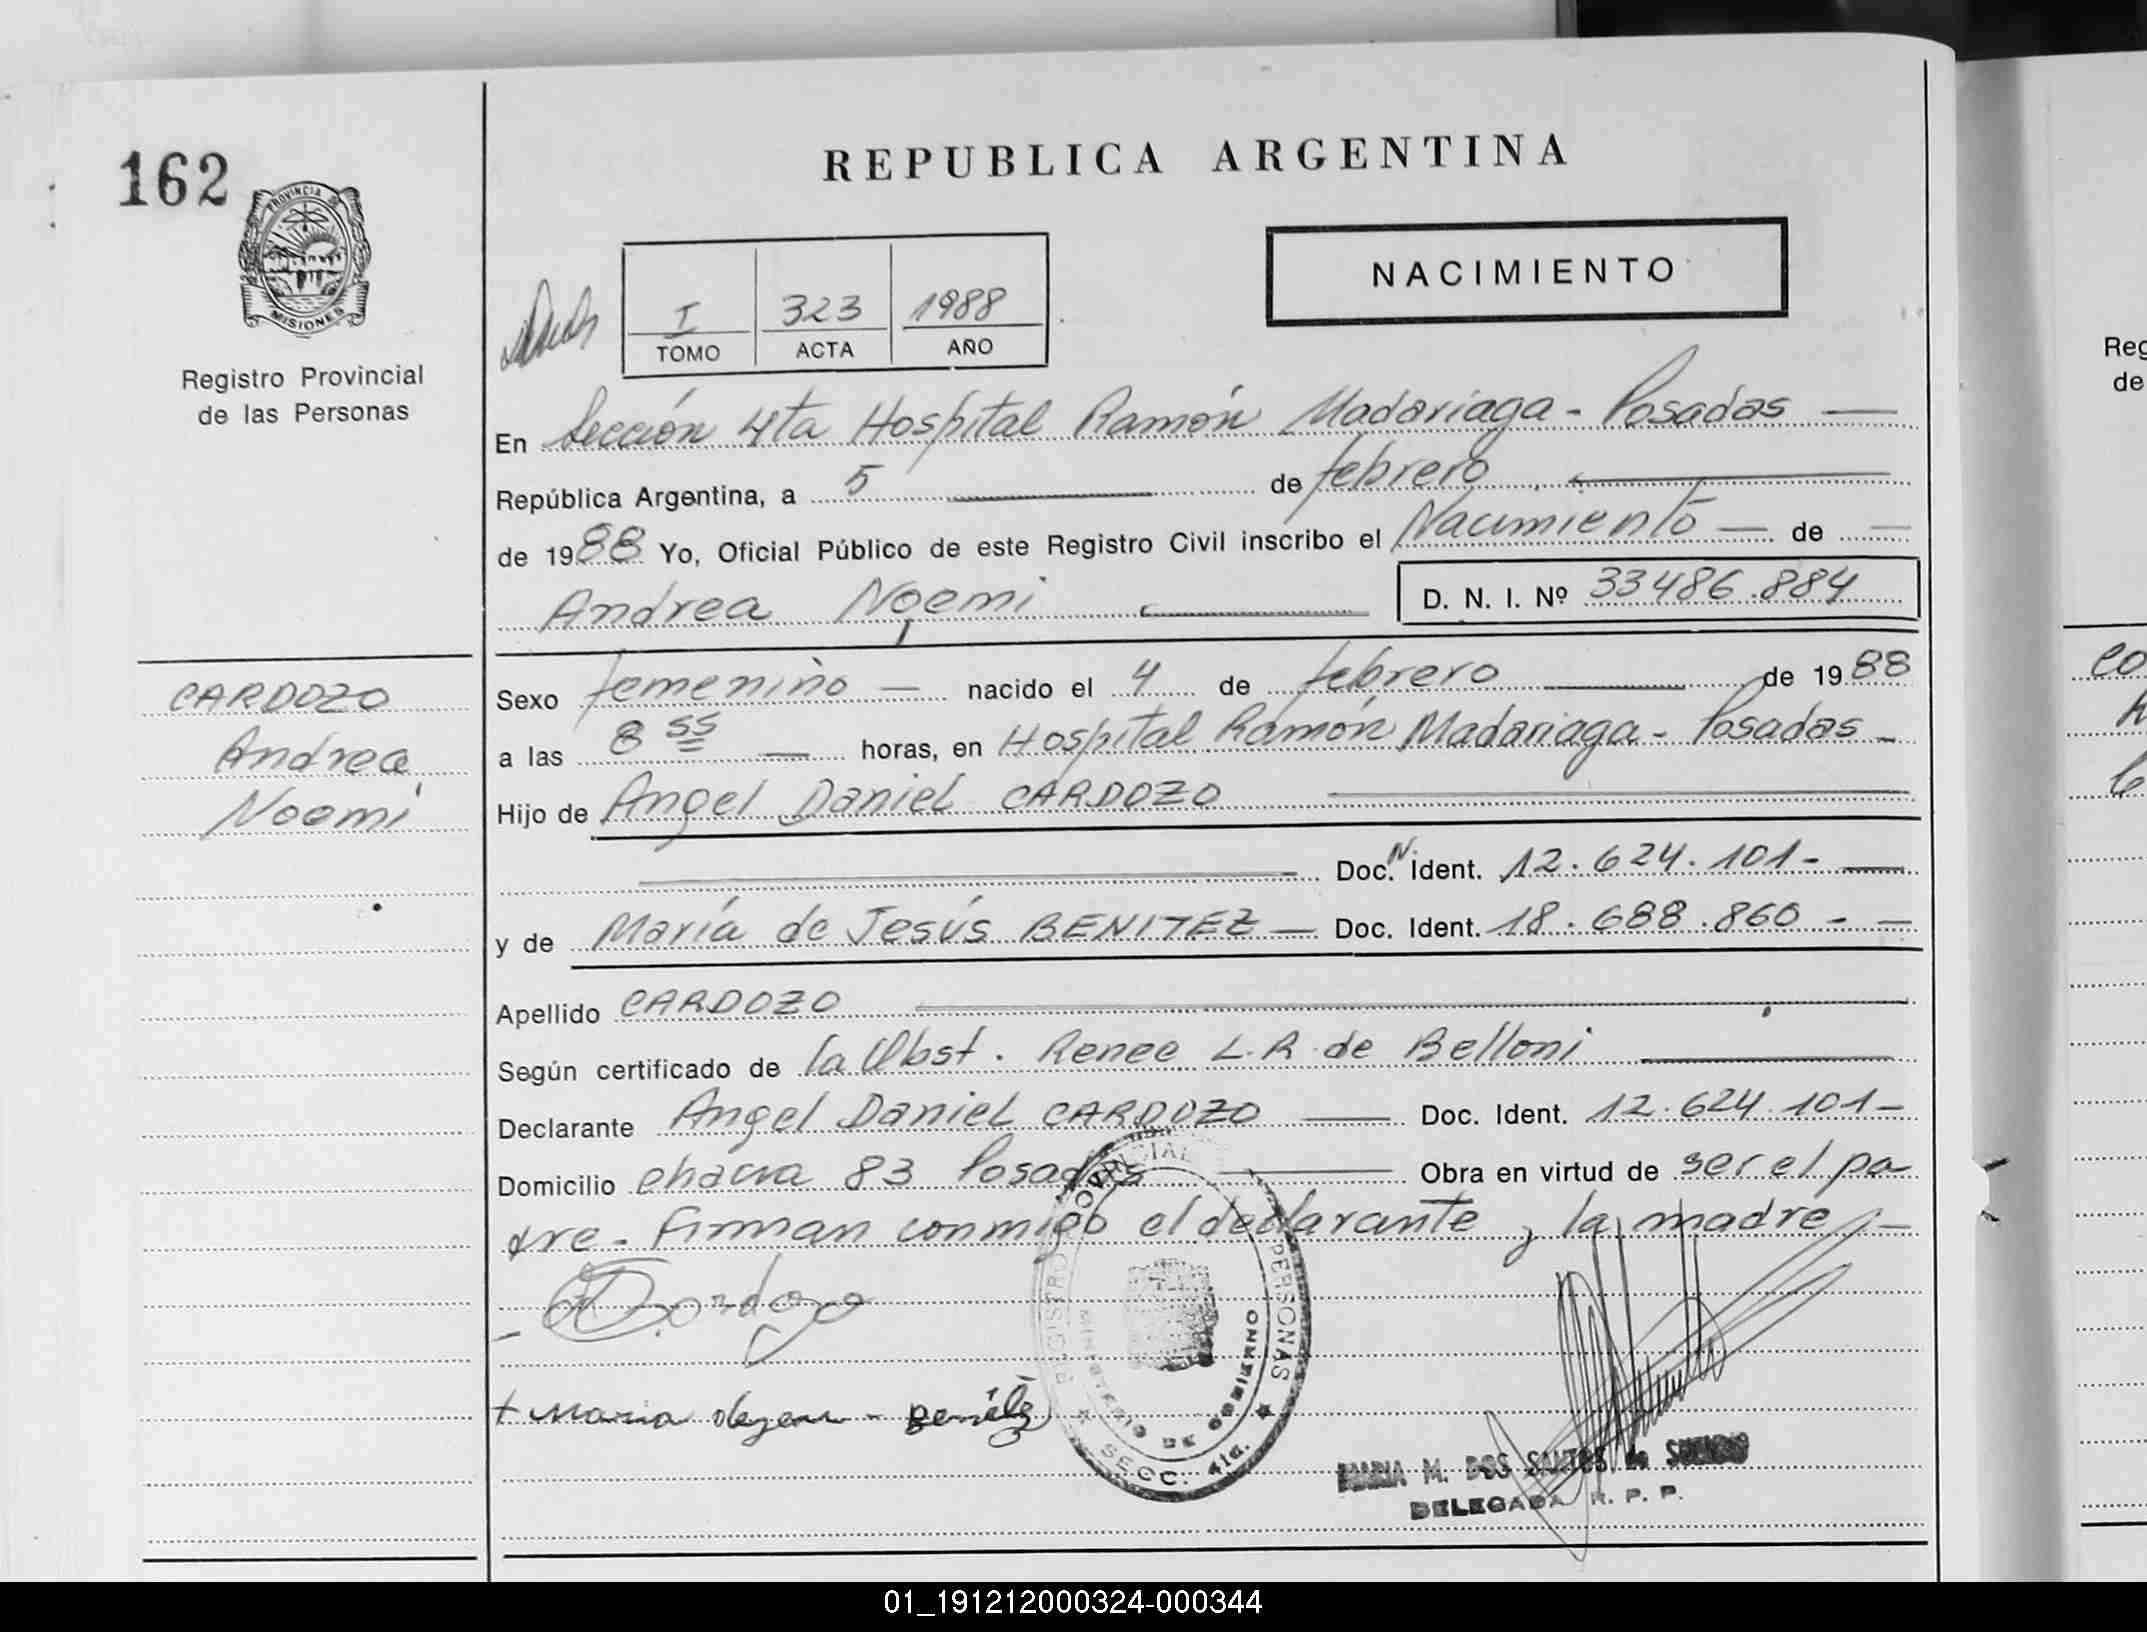 162
PROVINCIA
MISIONES
Registro Provincial
de las Personas
REPUBLICA ARGENTINA
NACIMIENTO
I 323 1988
TOMO ACTA AÑO
En Sección 4ta Hospital Ramón Madariaga - Posadas —
República Argentina, a 5 — de febrero —
de 1988 Yo, Oficial Público de este Registro Civil inscribo el Nacimiento — de —
Andrea Noemi — D. N. I. Nº 33486.884
CARDOZO
Andrea
Noemi
Sexo femenino — nacido el 4 de febrero — de 1988
a las 8 55 — horas, en Hospital Ramón Madariaga - Posadas -
Hijo de Angel Daniel CARDOZO —
— Doc. N. Ident. 12.624.101- —
y de María de Jesús BENITEZ — Doc. Ident. 18.688.860 - —
Apellido CARDOZO —
Según certificado de la Obst. Renee L.R. de Belloni —
Declarante Angel Daniel CARDOZO — Doc. Ident. 12.624.101-
Domicilio chacra 83 Posadas — Obra en virtud de ser el pa
dre - Firman conmigo el declarante y la madre . —
REGISTRO PROVINCIAL PERSONAS
MINISTERIO DE GOBIERNO
SECC. 4ta.
MARIA M. DOS SANTOS de
DELEGADA R. P. P.
Reg
de
01_191212000324-000344